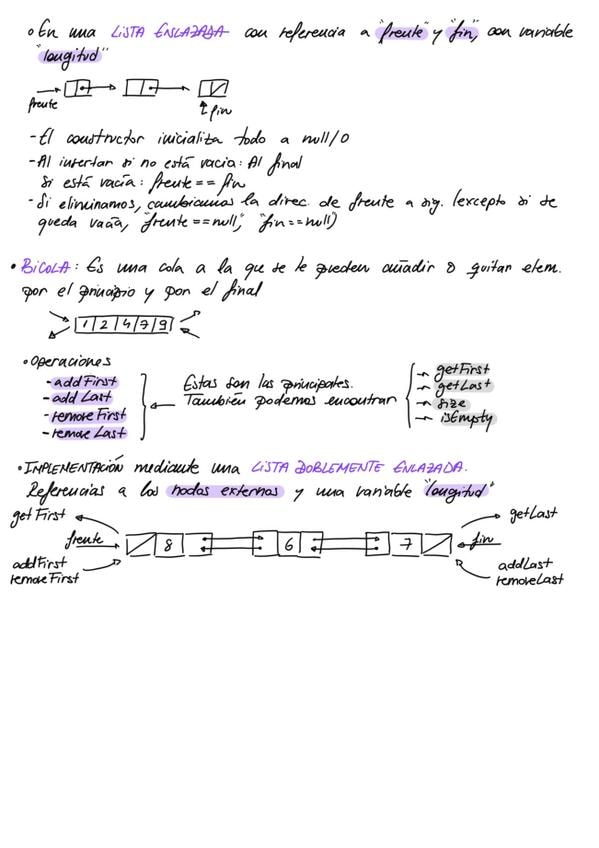 ◦ En una LISTA ENLAZADA con referencia a "frente" y "fin", con variable
"longitud"
frente
fin
- El constructor inicializa todo a null/0
- Al insertar si no está vacía: Al final
Si está vacía: frente == fin
- Si eliminamos, cambiamos la direc. de frente a sig. (excepto si se
queda vacía, "frente==null", "fin==null")
• BICOLA: Es una cola a la que se le pueden añadir o quitar elem.
por el principio y por el final
1 2 4 7 9
• Operaciones
- addFirst
- addLast
- removeFirst
- removeLast
Estas son las principales.
También podemos encontrar
→ getFirst
→ getLast
→ size
→ isEmpty
• IMPLEMENTACIÓN mediante una LISTA DOBLEMENTE ENLAZADA.
Referencias a los nodos externos y una variable "longitud"
getFirst
getLast
frente
8 6 7
fin
addFirst
removeFirst
addLast
removeLast